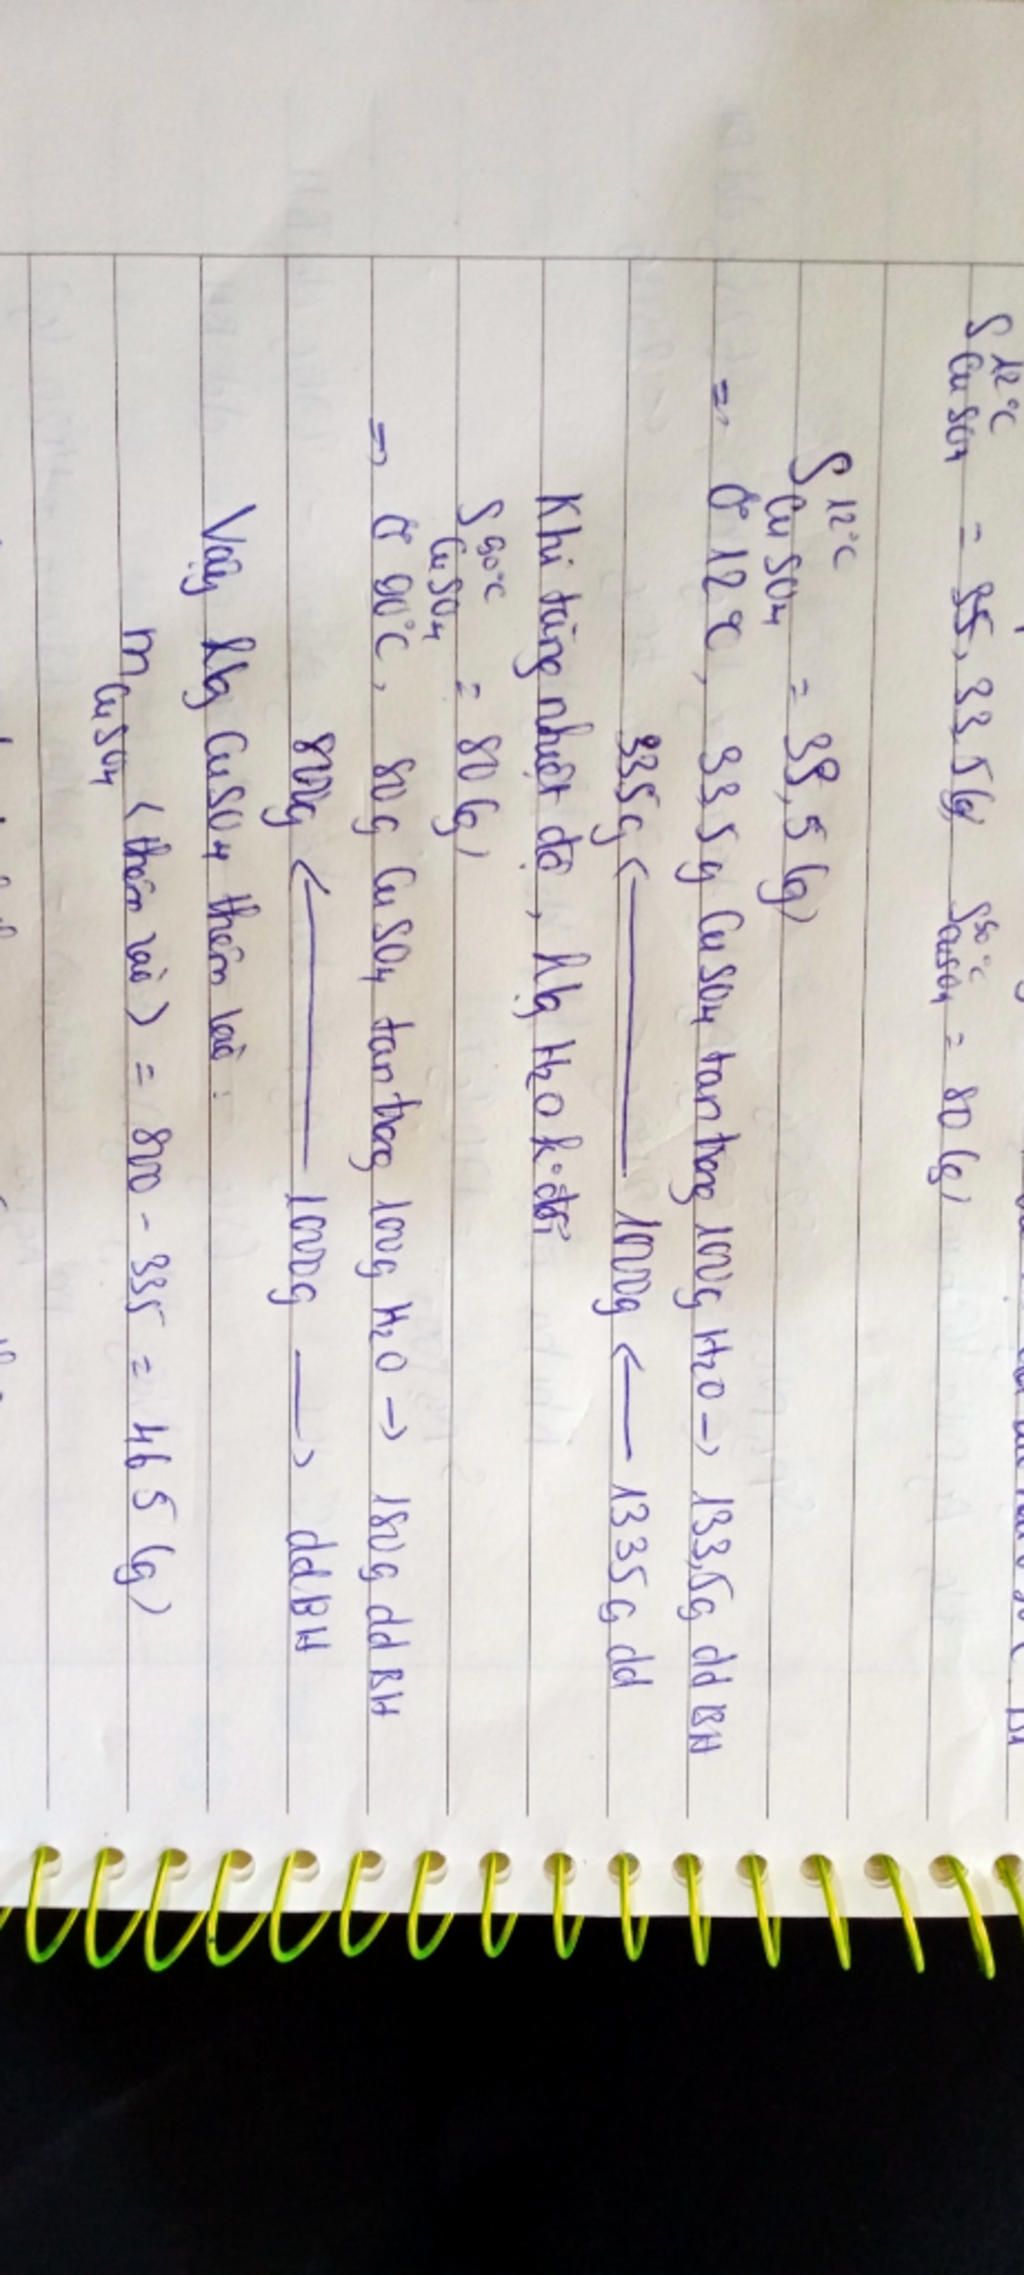 S 12°C CuSO4 = 35, 33.5 (g) S 90°C CuSO4 = 80 (g)
S 12°C CuSO4 = 33,5 (g)
=> Ở 12°C, 33,5g CuSO4 tan trong 100g H2O -> 133,5g dd BH
335g <— 1000g <— 1335g dd
Khi tăng nhiệt độ, klg H2O k đổi
S 90°C CuSO4 = 80 (g)
=> Ở 90°C, 80g CuSO4 tan trong 100g H2O -> 180g dd BH
800g <— 1000g —> dd BH
Vậy klg CuSO4 thêm vào:
m CuSO4 (thêm vào) = 800 - 335 = 465 (g)